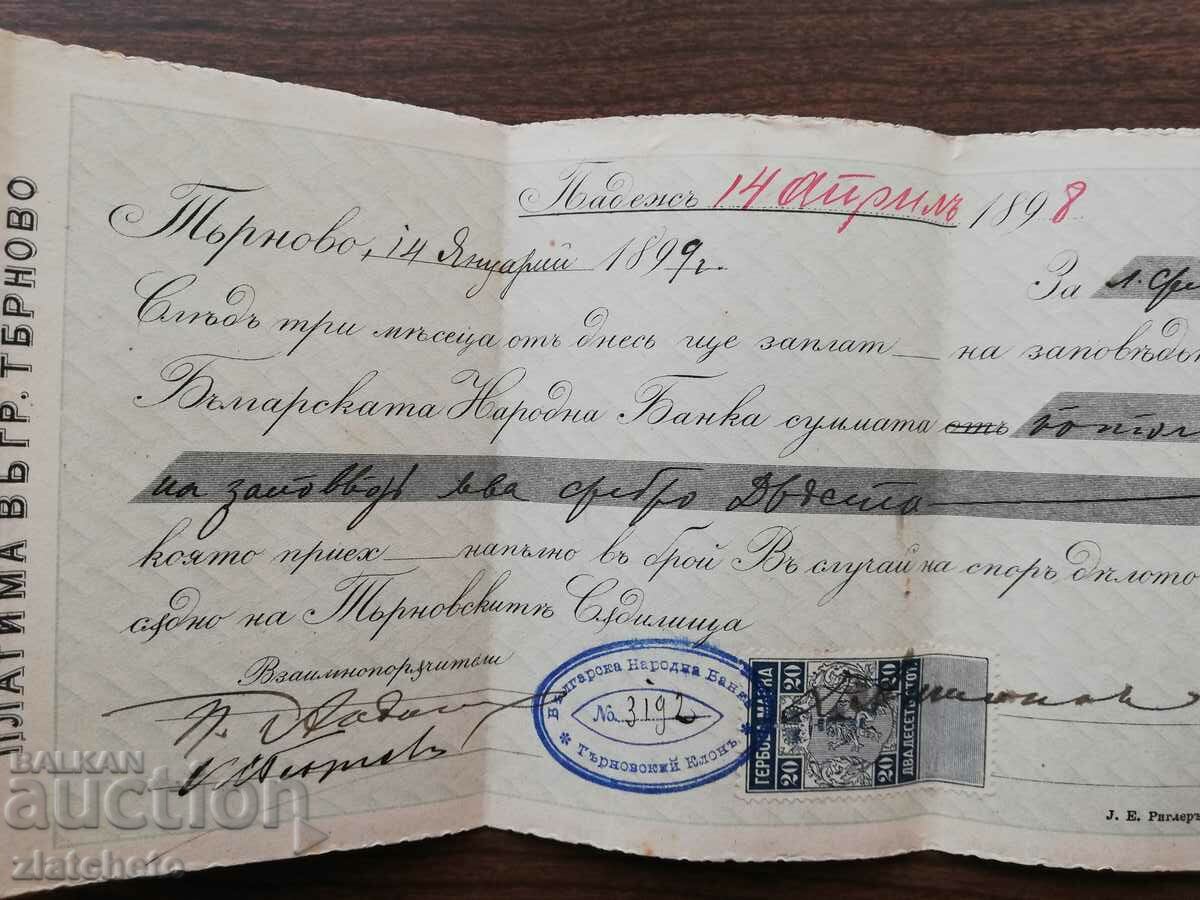 ПЛАТИМА ВЪ ГР. ТЪРНОВО
Падежъ 14 Априлъ 1898
Търново, 14 Януарий 1899 г.
За л. сре
Слѣдъ три мѣсеца отъ днесь ще заплат — на заповѣдьт
Българската Народна Банка суммата отъ
на заповѣдь лѣва сребро Двѣста
която приех — напълно въ брой Въ случай на споръ дѣлото
сѫдно на Търновскитѣ Сѫдилища
Взаимнопорѫчители
Българска Народна Банка
No. 3192
* Търновский Клонъ *
20 20
ГЕРБОВА МАРКА
ДВАДЕСЕТЬ СТОТ.
20 20
J. Е. Риглеръ
BALKAN
auction
zlatcheto